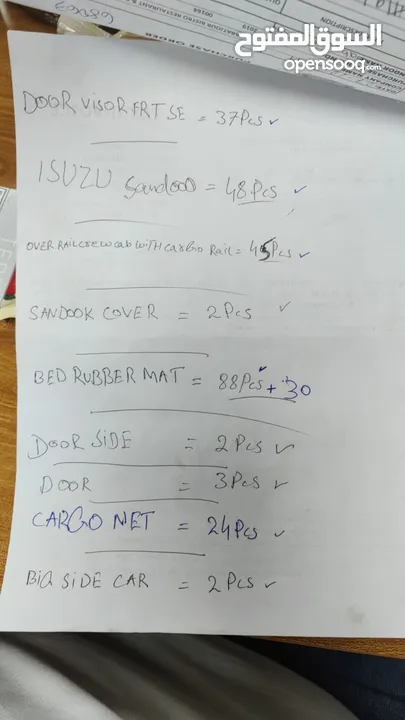 السوق المفتوح
opensooq.com
PURCHASE ORDER
DOOR VISOR FRT SE = 37Pcs ✓
ISUZU Sandooo = 48Pcs ✓
OVER RAIL crew cab with cargo Rail = 45Pcs ✓
SANDOOK COVER = 2Pcs ✓
BED RUBBER MAT = 88Pcs ✓ + 30
DOOR SiDE = 2Pcs ✓
DOOR = 3Pcs ✓
CARGO NET = 24Pcs ✓
BiG SiDE CAR = 2Pcs ✓